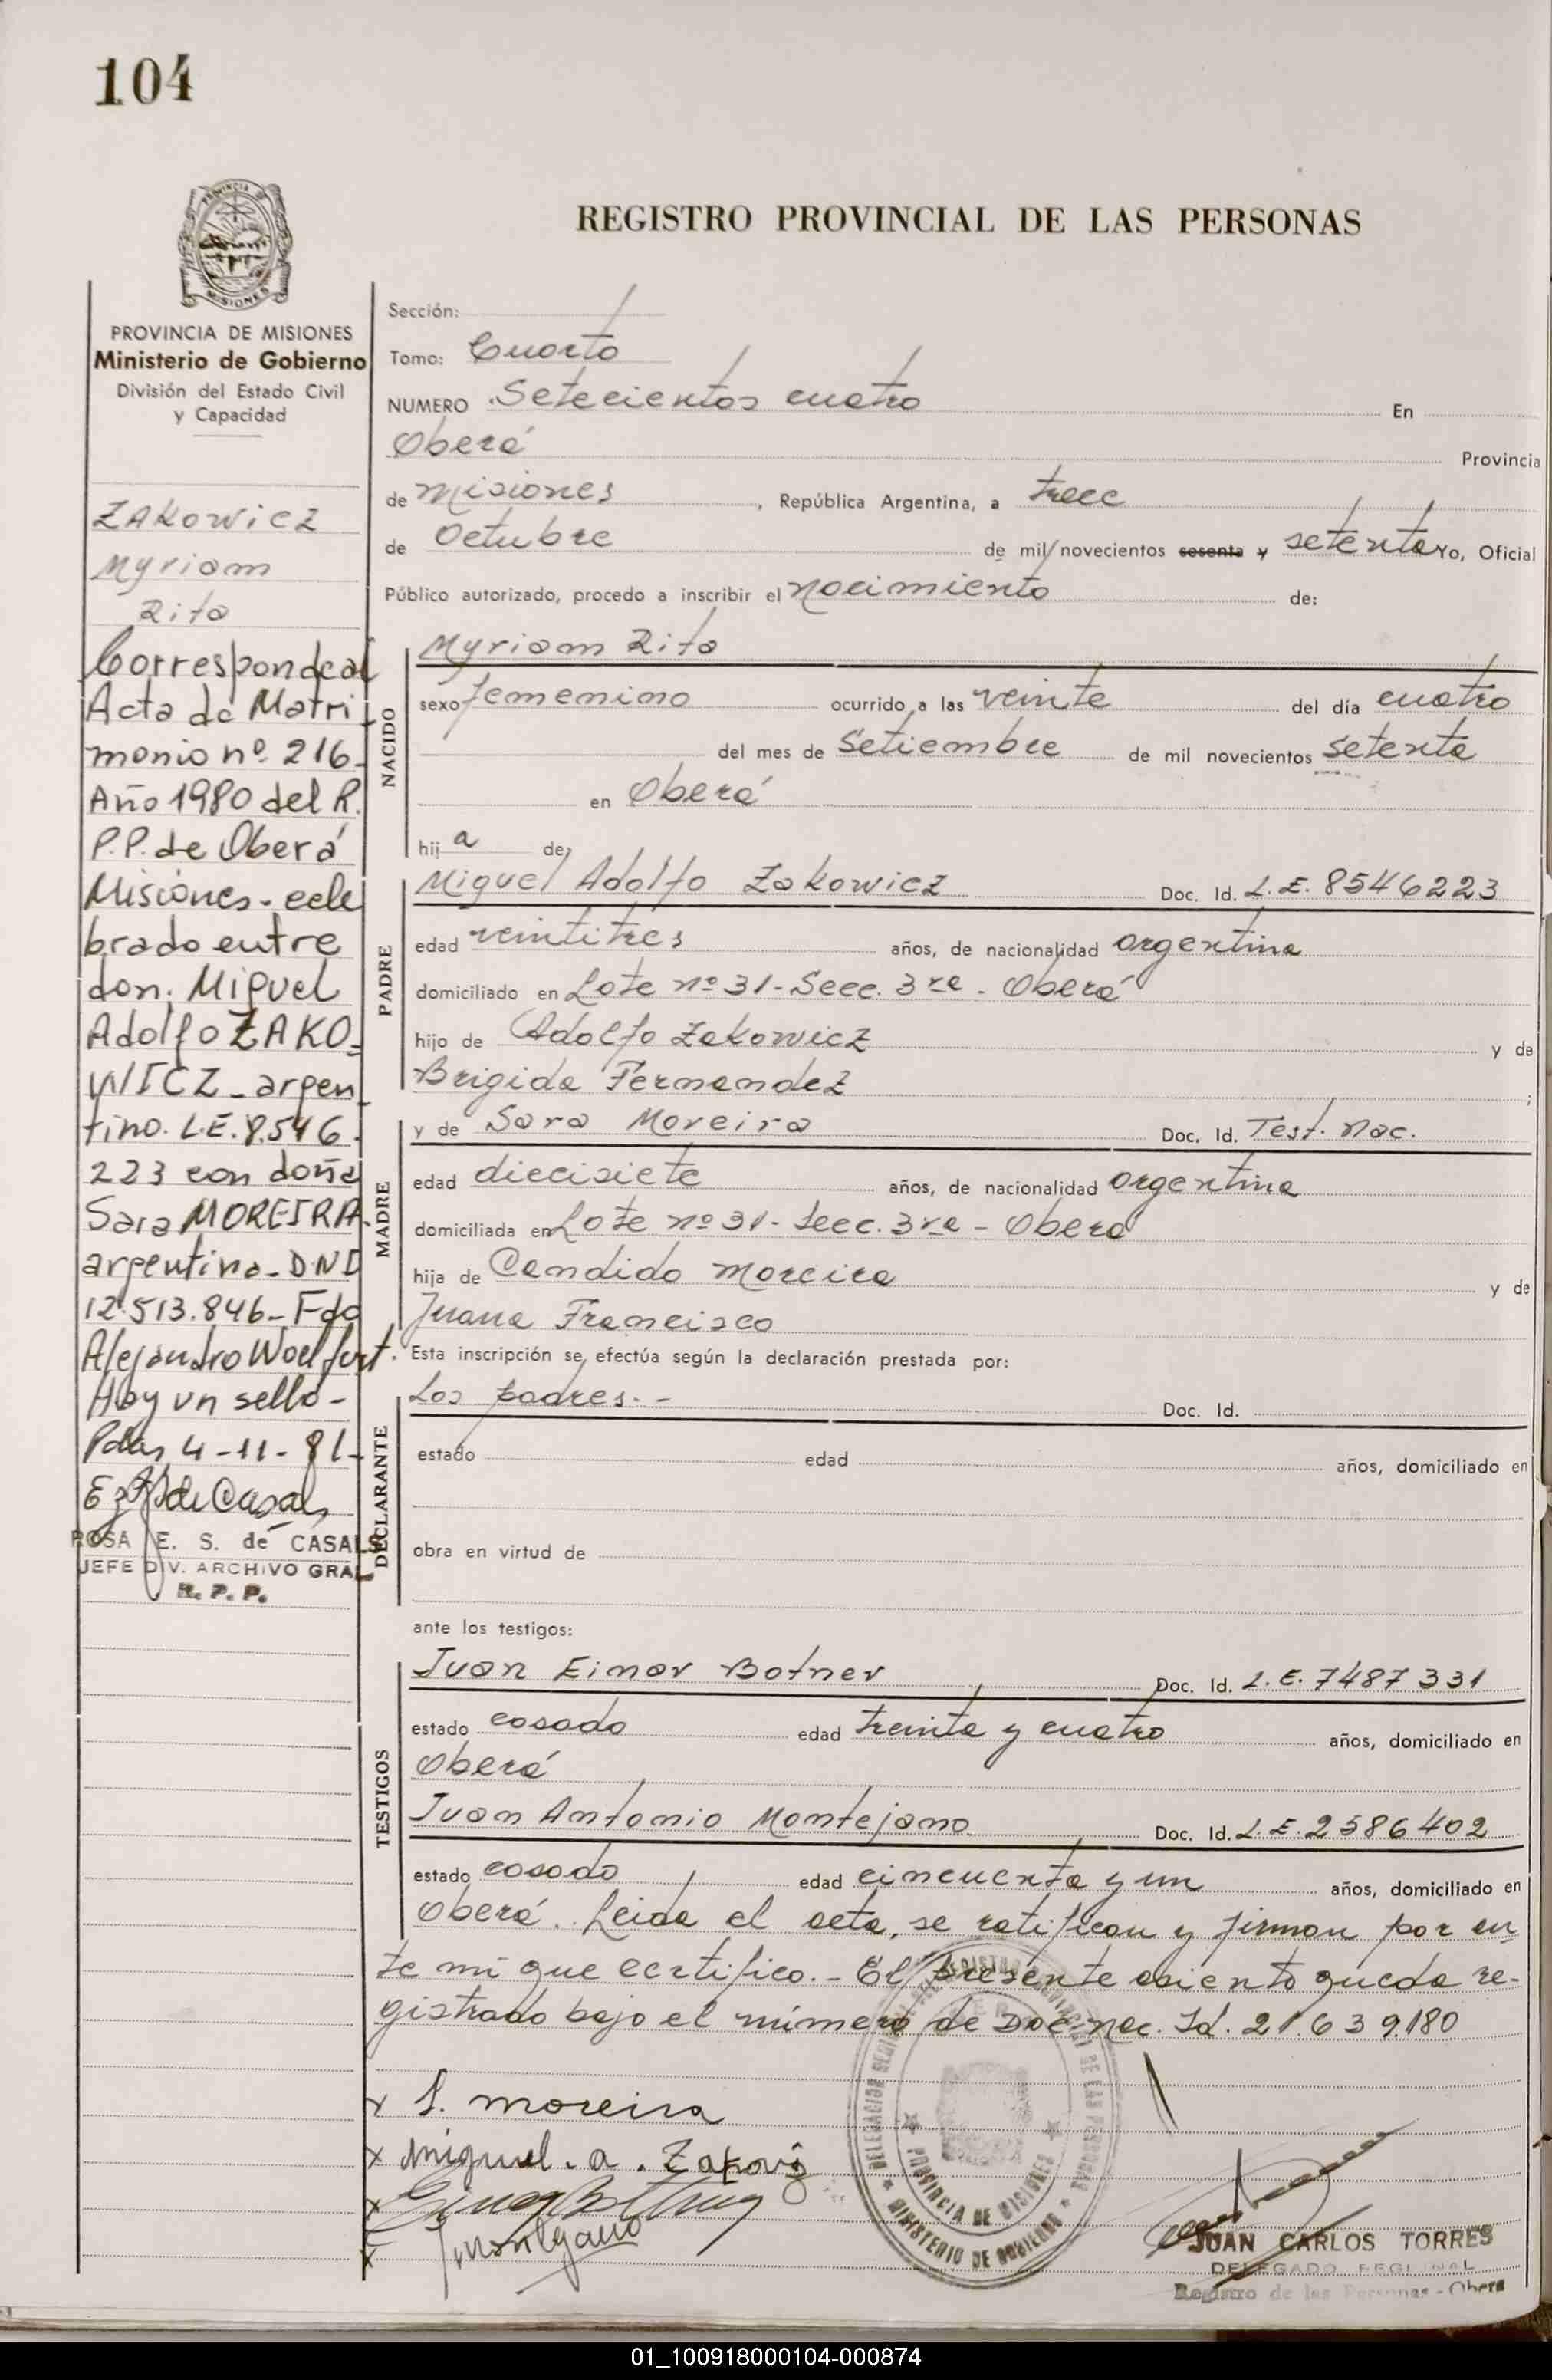 104
REGISTRO PROVINCIAL DE LAS PERSONAS
MISIONES
PROVINCIA DE MISIONES
Ministerio de Gobierno
División del Estado Civil
y Capacidad
ZAKOWICZ
Myriam
Rita
Corresponde al
Acta de Matri
monio nº 216-
Año 1980 del R.
P.P. de Oberá
Misiones - cele
brado entre
don. Miguel
Adolfo ZAKO-
WICZ - argen
tino. L.E. 8.546.
223 con doña
Sara MOREIRA.
argentina - DNI
12.513.846 - Fdo
Alejandro Woelfert.
Hay un sello -
Pdas 4-11-81-
de Casals
ROSA E. S. de CASALS
JEFE DIV. ARCHIVO GRAL
R. P. P.
Sección:
Tomo: Cuarto
NUMERO Setecientos cuatro En
Oberá Provincia
de Misiones, República Argentina, a trece
de Octubre de mil novecientos sesenta y setenta Yo, Oficial
Público autorizado, procedo a inscribir el nacimiento de:
NACIDO
Myriam Rita
sexo femenino ocurrido a las veinte del día cuatro
del mes de Setiembre de mil novecientos setenta
en Oberá
hij a de;
PADRE
Miguel Adolfo Zakowicz Doc. Id. L.E. 8546223
edad veintitres años, de nacionalidad argentina
domiciliado en Lote nº 31 - Secc. 3ra - Oberá
hijo de Adolfo Zakowicz y de
Brigida Fernandez ;
MADRE
y de Sara Moreira Doc. Id. Test. Nac.
edad diecisiete años, de nacionalidad argentina
domiciliada en Lote nº 31 - Secc. 3ra - Oberá
hija de Candido Moreira y de
Juana Francisco
Esta inscripción se efectúa según la declaración prestada por:
DECLARANTE
Los padres. - Doc. Id.
estado edad años, domiciliado en
obra en virtud de
ante los testigos:
TESTIGOS
Juan Einar Botner Doc. Id. L.E. 7487331
estado casado edad treinta y cuatro años, domiciliado en
Oberá
Juan Antonio Montejano Doc. Id. L.E. 2586402
estado casado edad cincuenta y un años, domiciliado en
Oberá. Leida el acta, se ratifican y firman por an
te mi que certifico. - El presente asiento queda re-
gistrado bajo el número de Doc. Nac. Id. 21.639.180
x S. Moreira
x Miguel. a.
x
x
DELEGACION REGISTRO PROVINCIAL DE LAS PERSONAS
PROVINCIA DE MISIONES
MINISTERIO DE GOBIERNO
JUAN CARLOS TORRES
DELEGADO REGIONAL
Registro de las Personas - Oberá
01_100918000104-000874